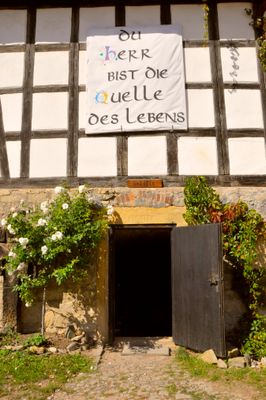 du
Herr
bist die
Quelle
des Lebens